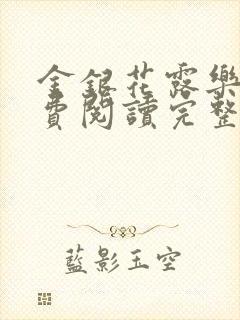 金銀花露樂
費閱讀完整
藍影玉空